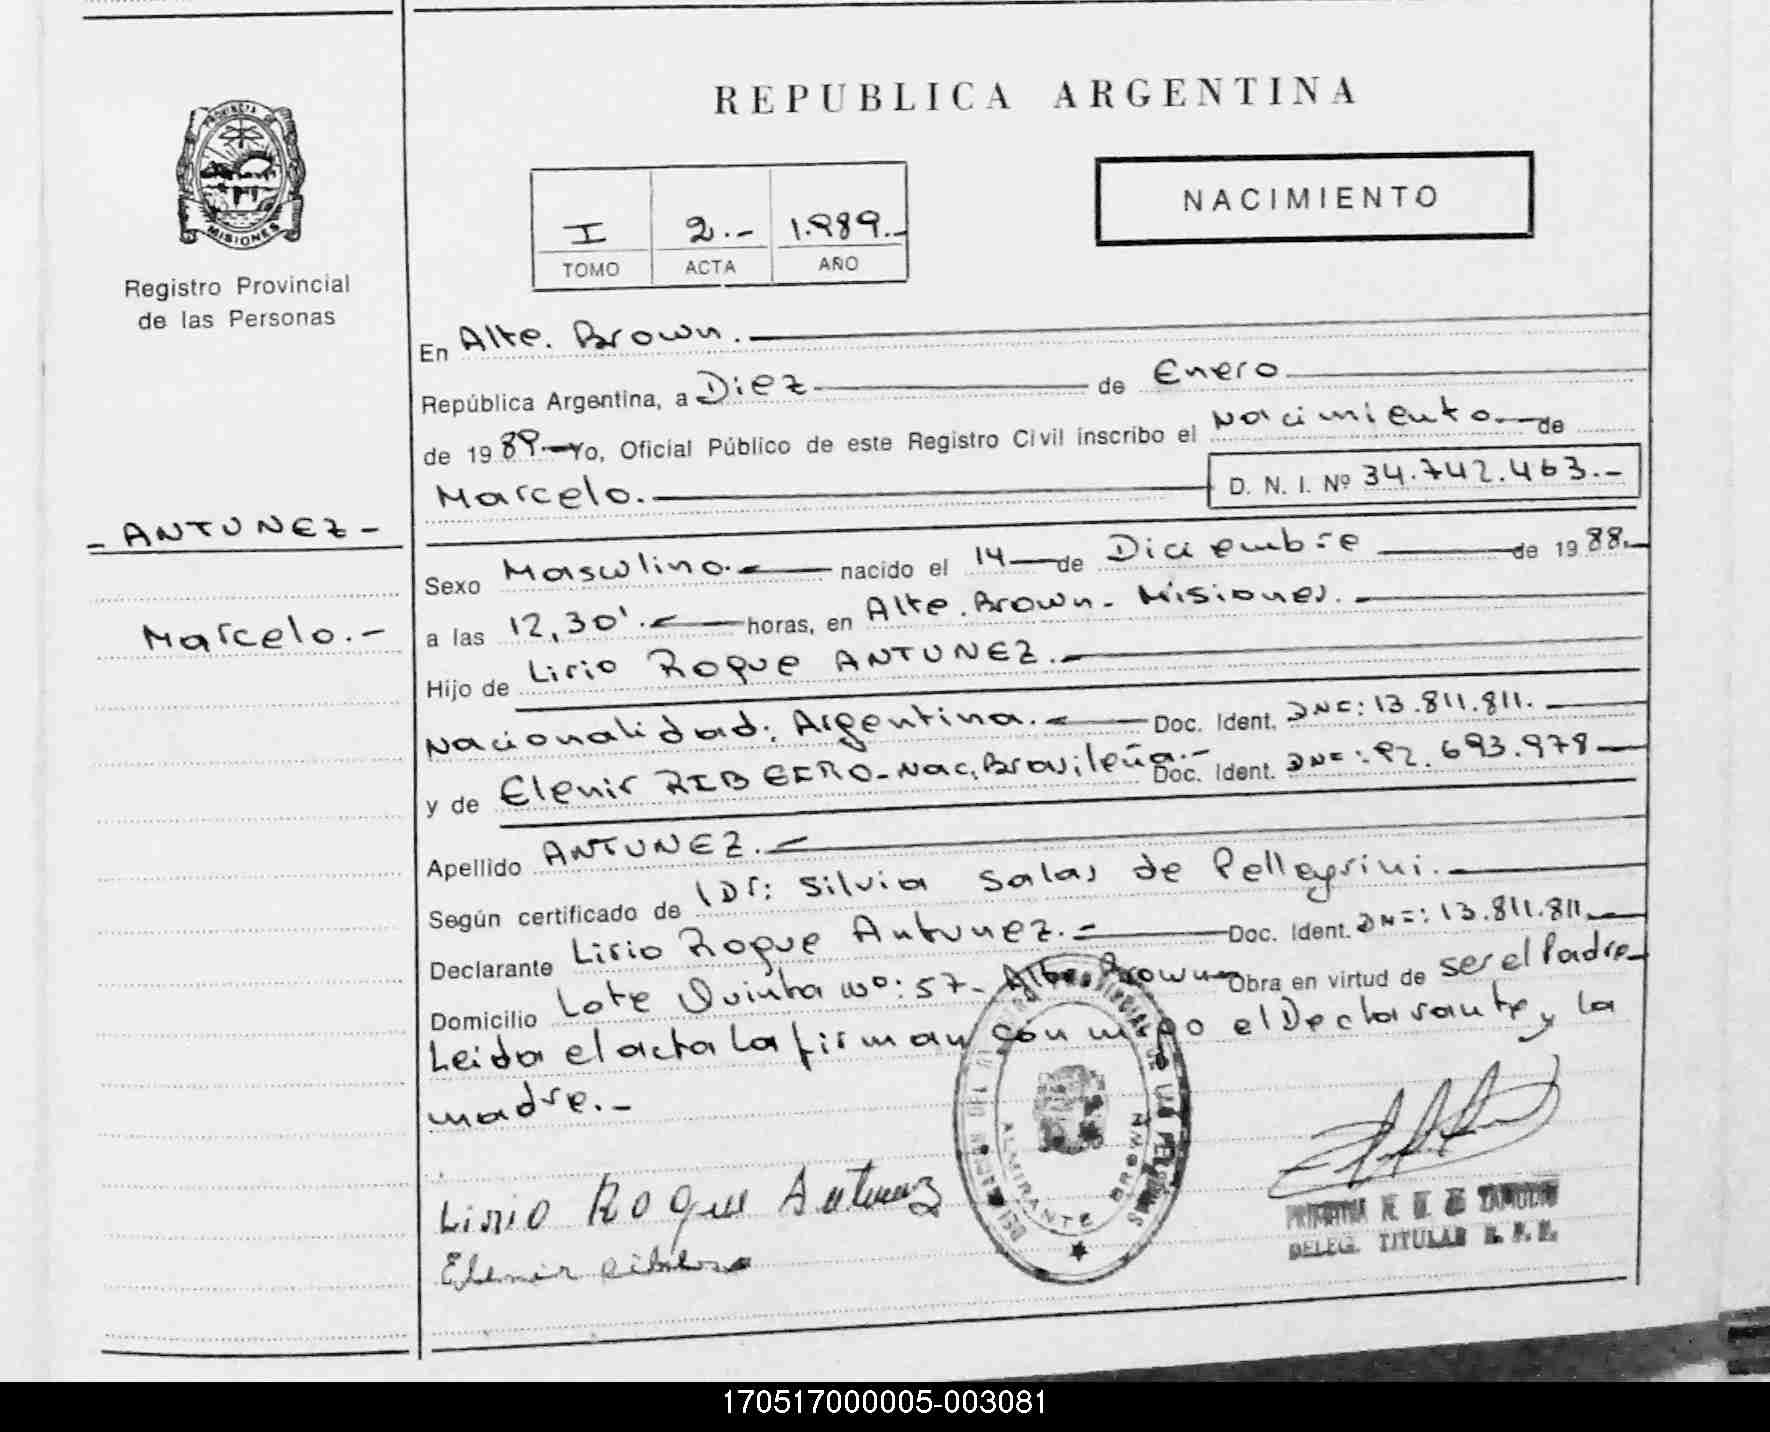 REPUBLICA ARGENTINA
PROVINCIA DE
MISIONES
Registro Provincial
de las Personas
NACIMIENTO
I 2.- 1.989.-
TOMO ACTA AÑO
En Alte. Brown.
República Argentina, a Diez de Enero
de 1989 Yo, Oficial Público de este Registro Civil inscribo el Nacimiento de
Marcelo. D. N. I. Nº 34.742.463.-
- ANTUNEZ -
Marcelo.-
Sexo Masculino.- nacido el 14 de Diciembre de 1988.
a las 12,30'. horas, en Alte. Brown - Misiones.
Hijo de Lirio Roque ANTUNEZ.
Nacionalidad: Argentina. Doc. Ident. DNI: 13.811.811.
y de Elenir RIBEIRO - Nac. Brasileña.- Doc. Ident. DNI: 92.693.978
Apellido ANTUNEZ.
Según certificado de Silvia Salas de Pellegrini.
Declarante Lirio Roque Antunez. Doc. Ident. DNI: 13.811.811.
Domicilio Lote Quinta Nº: 57 - Alte. Brown Obra en virtud de ser el Padre
Leida el acta la firman con migo el Declarante y la
madre.-
Lirio Roque Antunez
Elenir
ALMIRANTE BROWN
DELEG. TITULAR R. P. P.
170517000005-003081